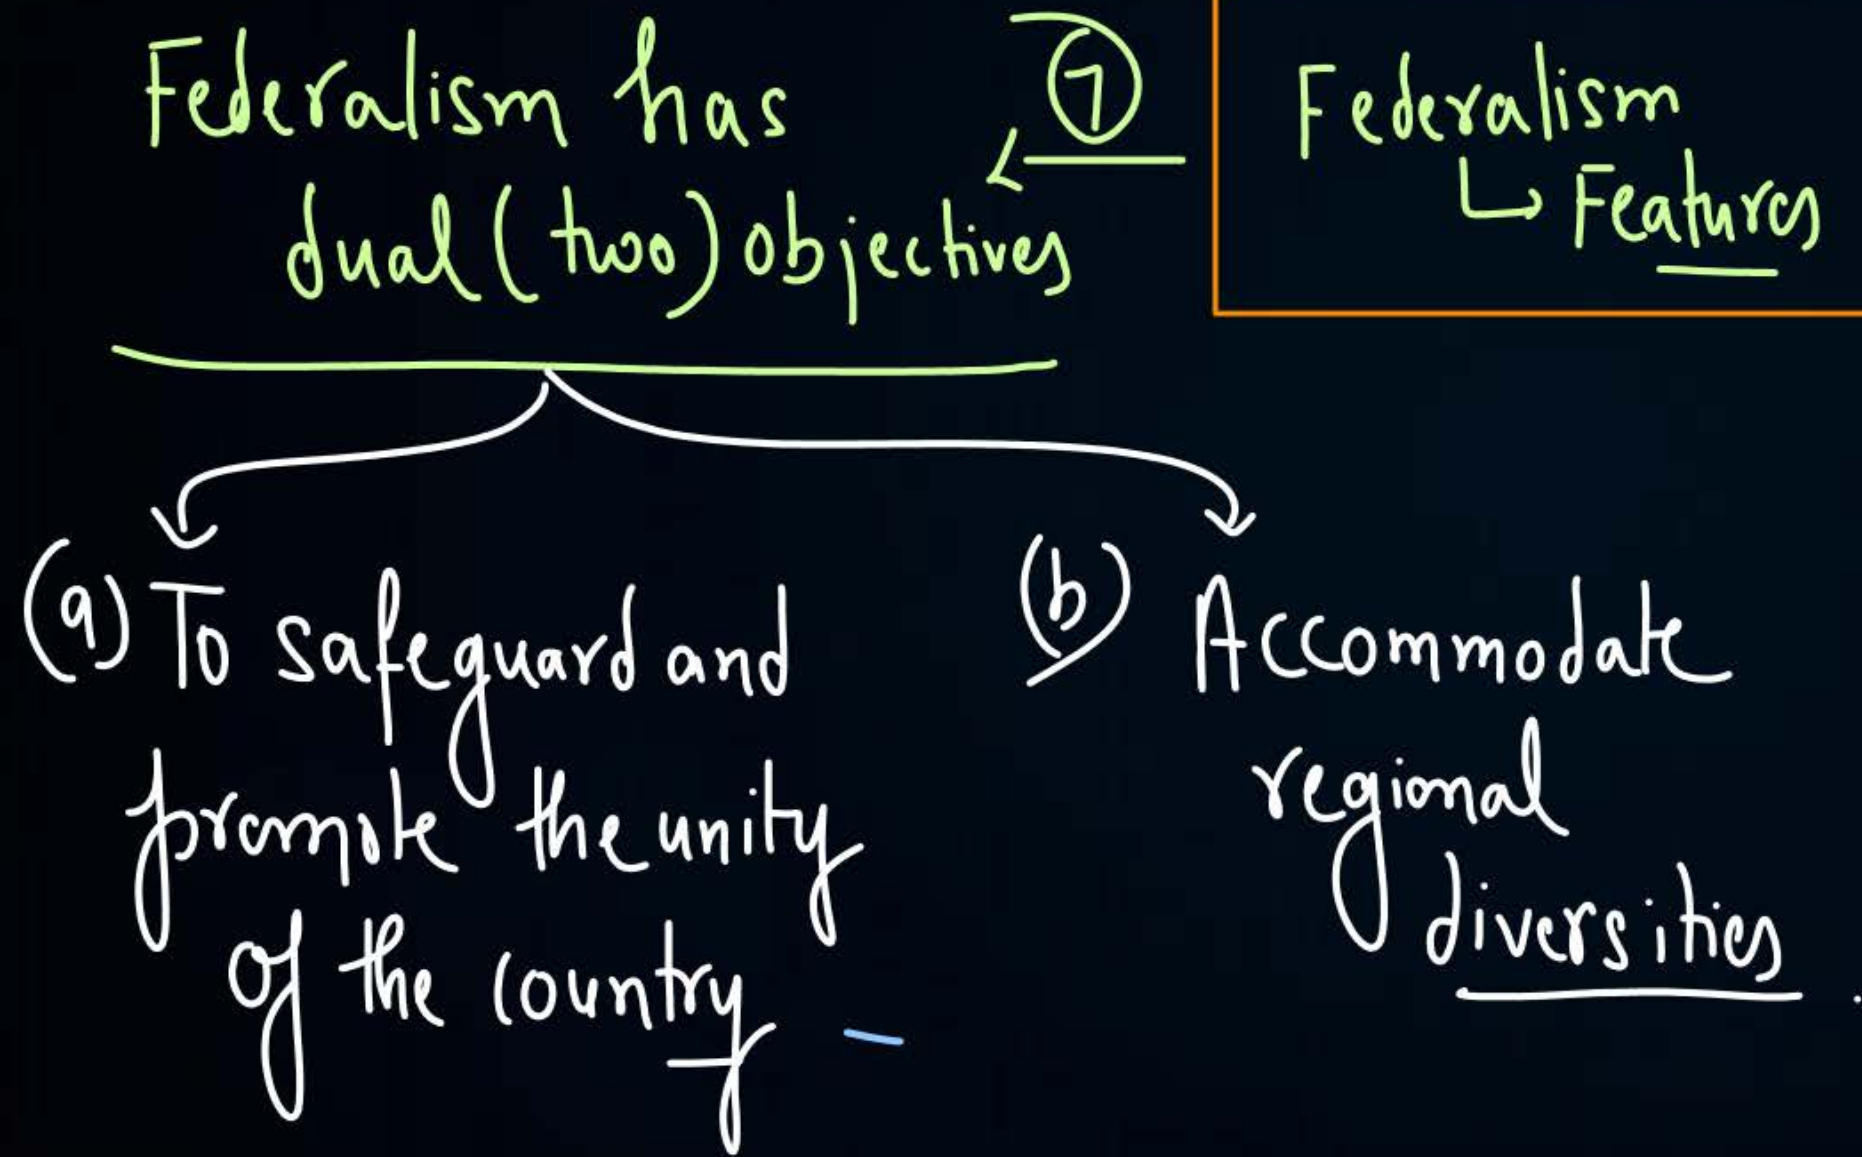 Federalism has
dual (two) objectives
7
Federalism
Features
(a) To safeguard and
promote the unity
of the country
(b) Accommodate
regional
diversities